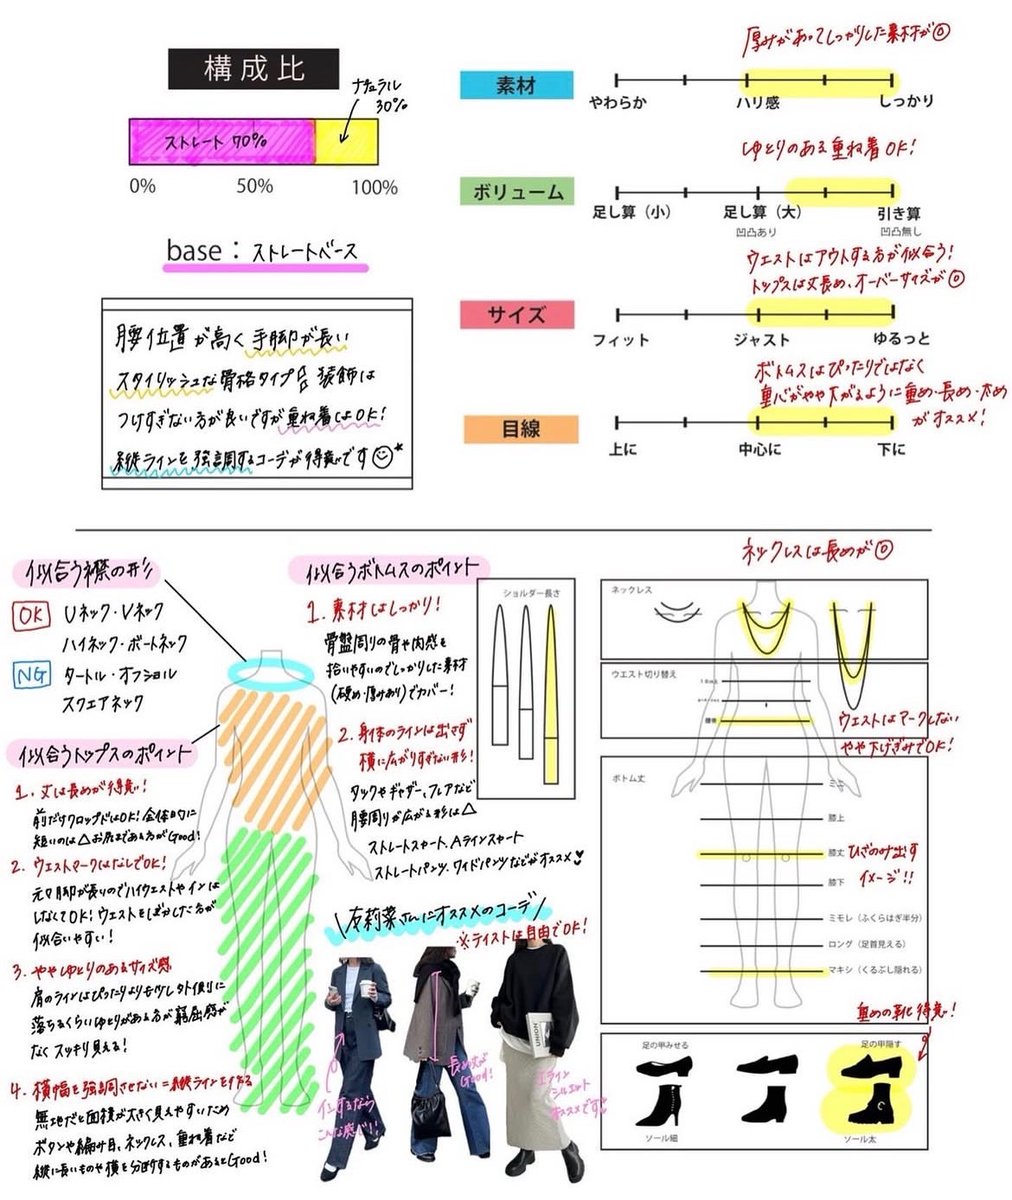 構成比
ナチュラル
30%
ストレート 70%
0%
50%
100%
base：ストレートベース
腰位置が高く手脚が長い
スタイリッシュな骨格タイプ 装飾は
つけすぎない方が良いですが重ね着はOK!
縦ラインを強調するコーデが得意です
厚みがあってしっかりした素材が◎
素材
やわらか
ハリ感
しっかり
ゆとりのある重ね着OK!
ボリューム
足し算（小）
足し算（大）
凹凸あり
引き算
凹凸無し
ウエストはアウトする方が似合う!
トップスは丈長め、オーバーサイズが◎
サイズ
フィット
ジャスト
ゆるっと
ボトムスはぴったりではなく
重心がやや下がるように重め・長め・太め
がオススメ!
目線
上に
中心に
下に
似合う襟の形
OK
Uネック・Vネック
ハイネック・ボートネック
NG
タートル・オフショル
スクエアネック
似合うトップスのポイント
1. 丈は長めが得意!
前だけクロップドはOK! 全体的に
短いのは△お尻まである方がGood!
2. ウエストマークはなしでOK!
元々脚が長いのでハイウエストやインは
しなくてOK! ウエストをぼかした方が
似合いやすい!
3. ややゆとりのあるサイズ感
肩のラインはぴったりより少し外側に
落ちるくらいゆとりがある方が窮屈感が
なくスッキリ見える!
4. 横幅を強調させない=縦ラインを作る
無地だと面積が大きく見えやすいため
ボタンや編み目、ネックレス、重ね着など
縦に長いものや横を分断するものがあるとGood!
似合うボトムスのポイント
1. 素材はしっかり!
骨盤周りの骨や肉感を
拾いやすいのでしっかりした素材
(硬め・厚みあり)でカバー!
2. 身体のラインは出さず
横に広がりすぎない形!
タックやギャザー、フレアなど
腰周りが広がる形は△
ストレートスカート、Aラインスカート
ストレートパンツ、ワイドパンツなどがオススメ
ショルダー長さ
\友莉菜さんにオススメのコーデ/
※テイストは自由でOK!
インするなら
こんな感じ!!
長め丈が
Good!
Iライン
シルエット
オススメです
ネックレスは長めが◎
ネックレス
ウエスト切り替え
腰骨
ウエストはマークしない
やや下げぎみでOK!
ボトム丈
ミニ
膝上
膝丈
ひざのみ出す
イメージ!!
膝下
ミモレ（ふくらはぎ半分）
ロング（足首見える）
マキシ（くるぶし隠れる）
重めの靴が得意!
足の甲みせる
足の甲隠す
ソール細
ソール太